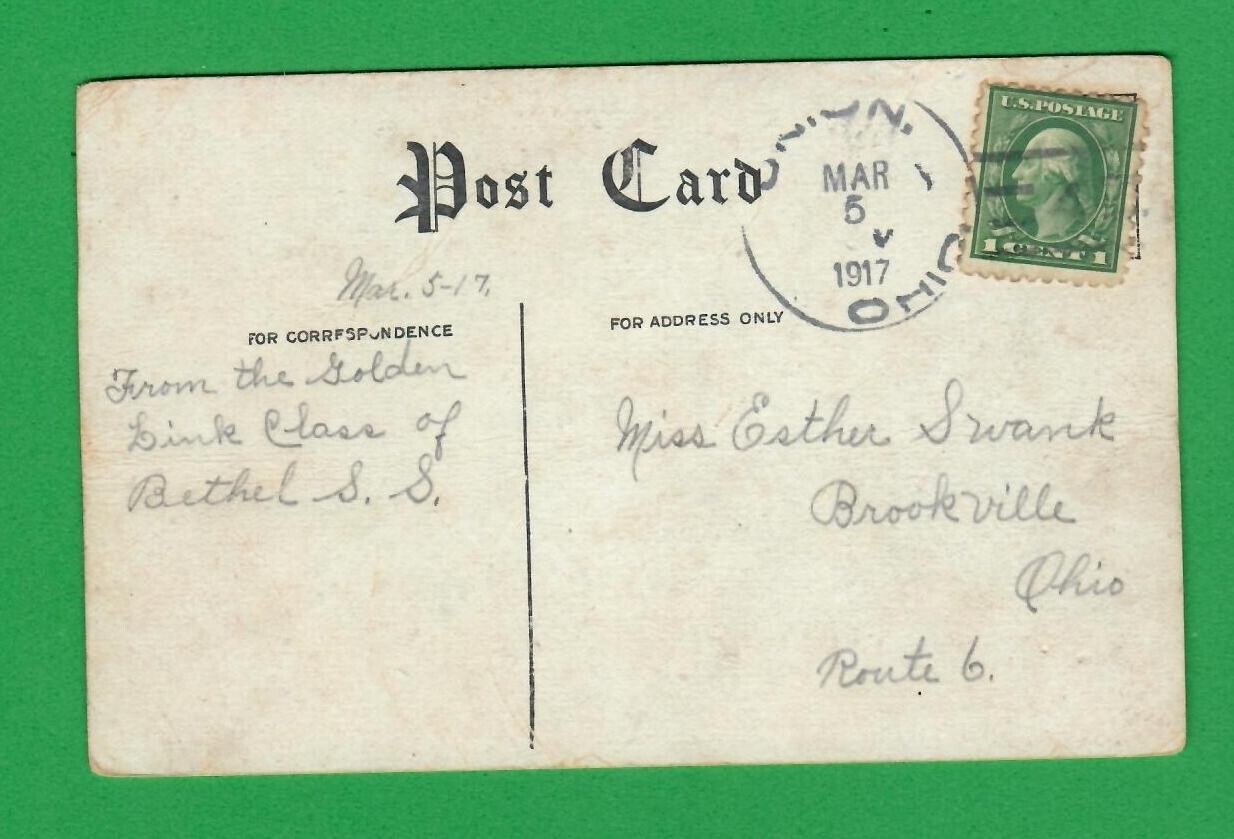 Post Card
U.S. POSTAGE
1 CENT 1
MAR
5
1917
OHIO
Mar. 5-17.
FOR CORRESPONDENCE
FOR ADDRESS ONLY
From the Golden
Link Class of
Bethel S. S.
Miss Esther Swank
Brookville
Ohio
Route 6.